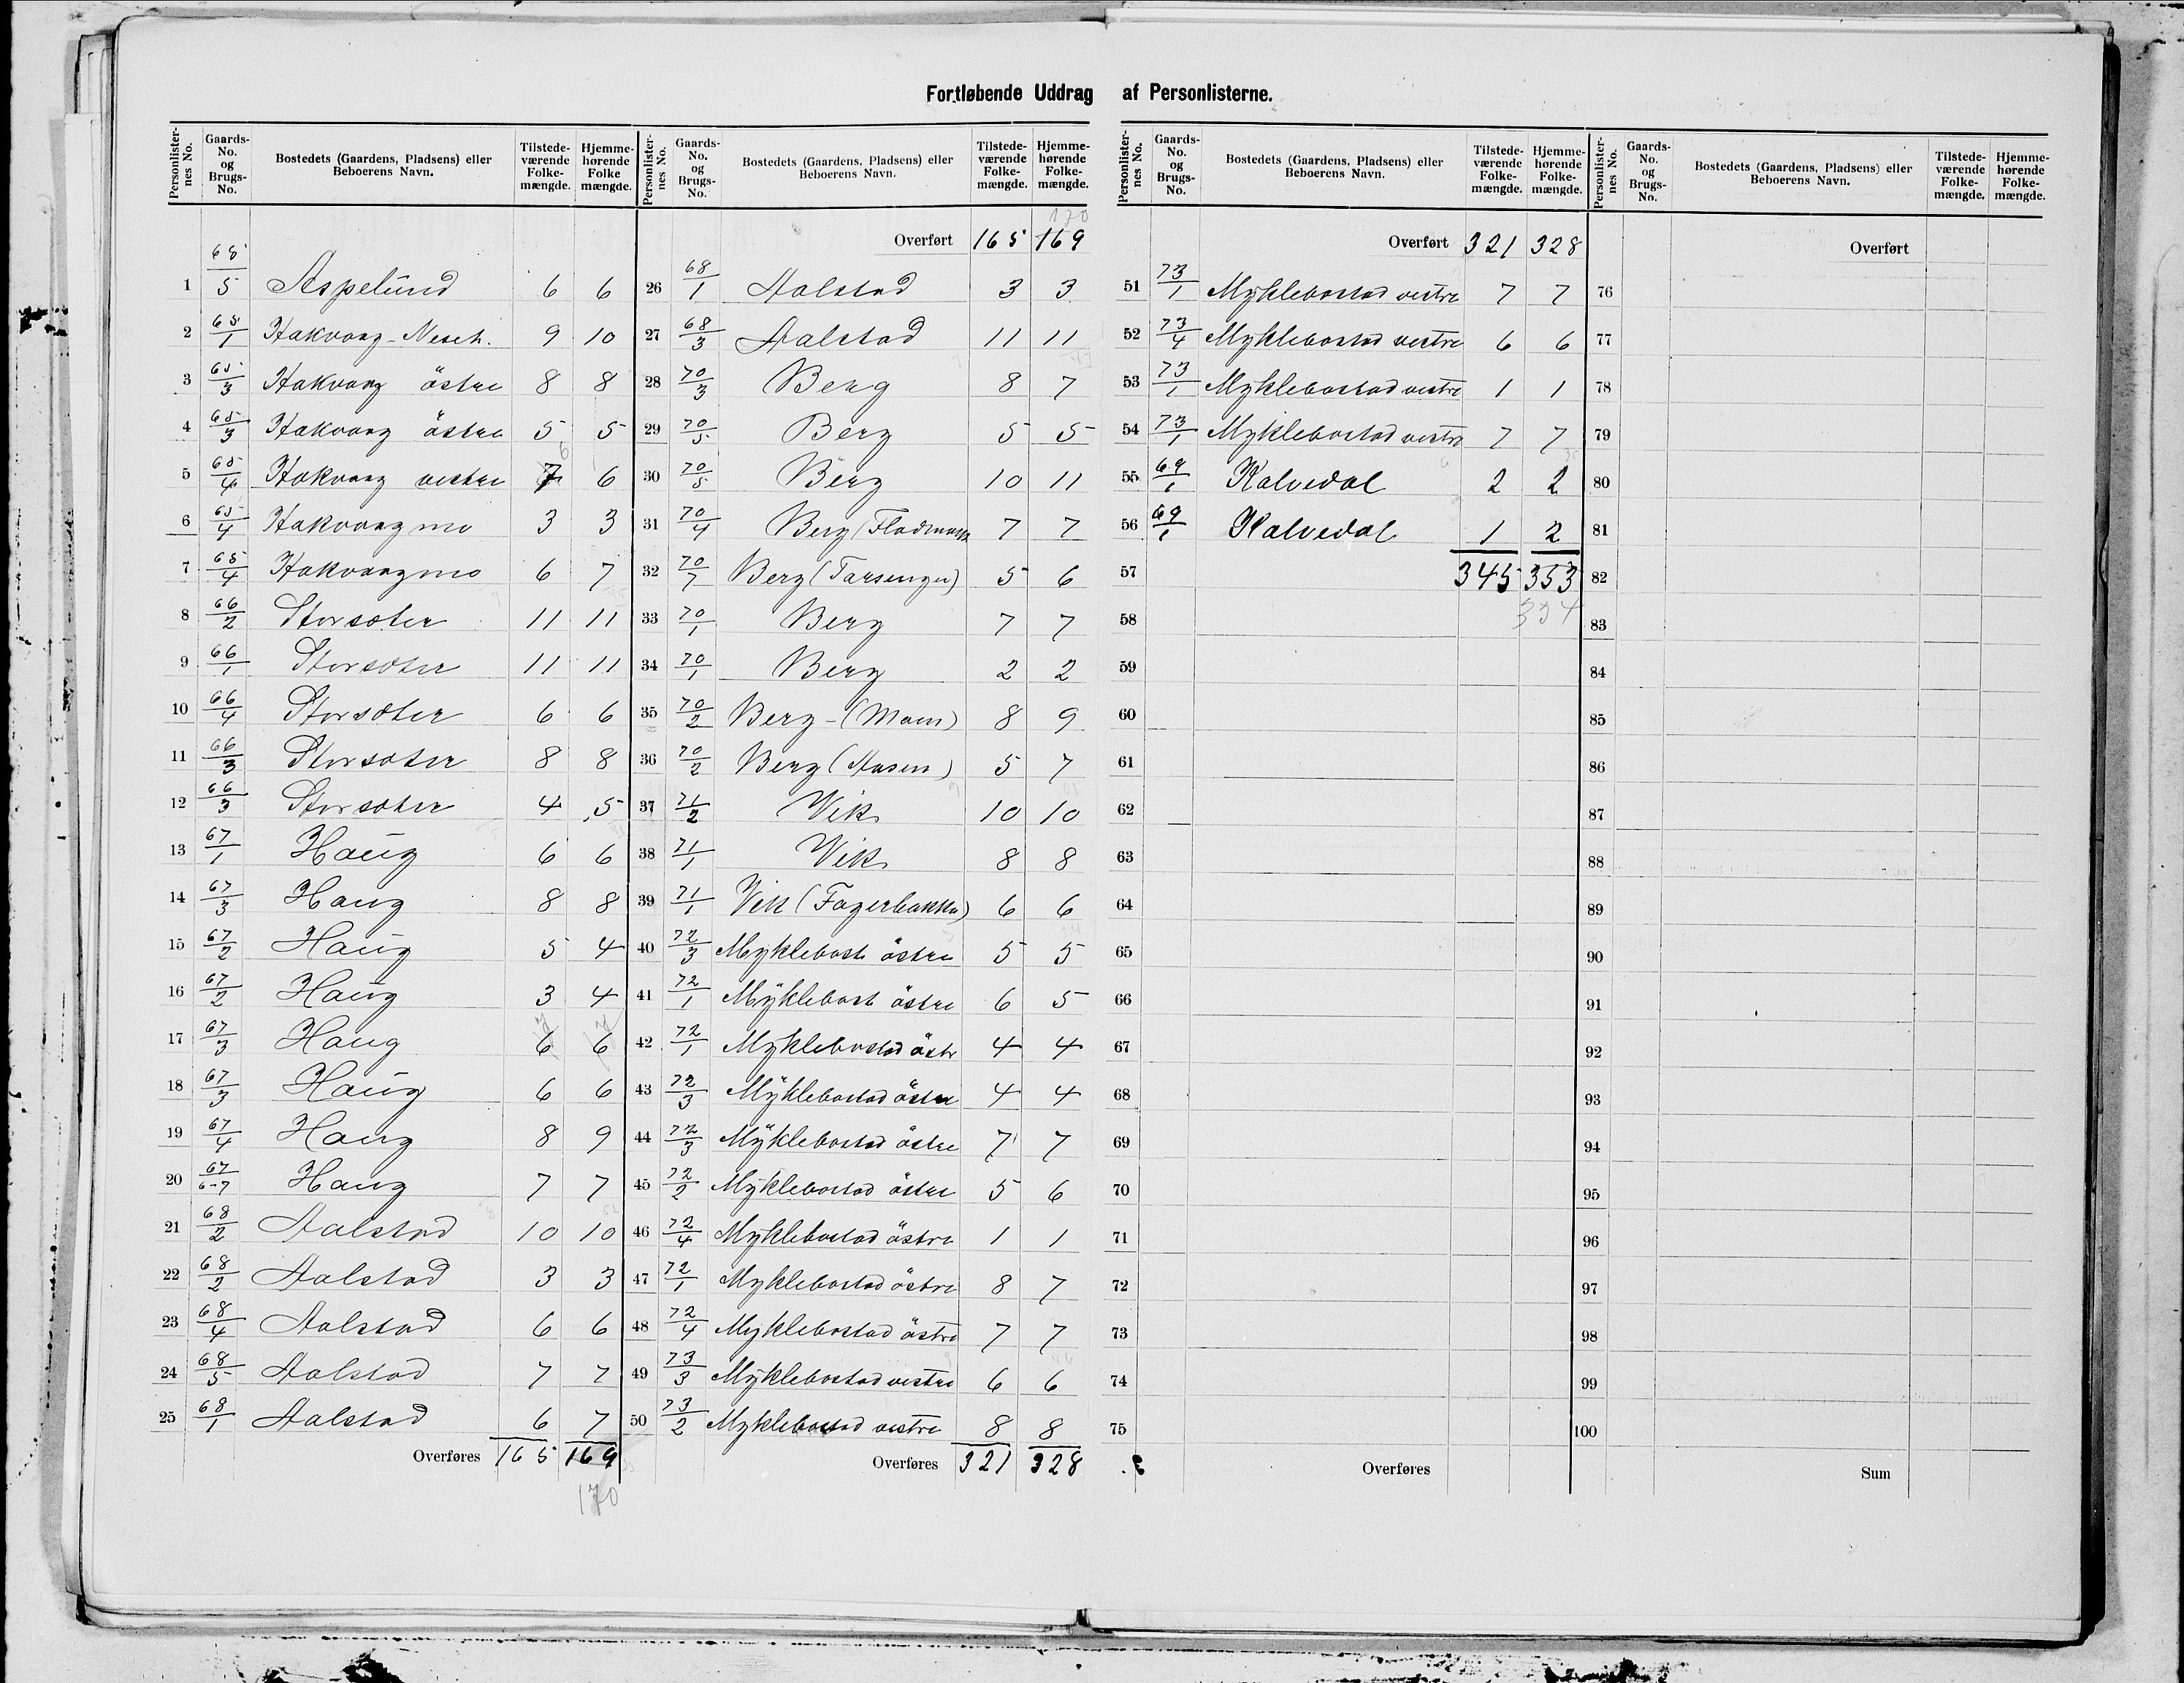 Fortløbende Uddrag af Personlisterne.
Personlister-nes No. Gaards-No. og Brugs-No. Bostedets (Gaardens, Pladsens) eller Beboerens Navn. Tilstede-værende Folke-mængde. Hjemme-hørende Folke mængde.
1 65/5 Aspelund 6 6
2 65/1 Hakvaag- 9 10
3 65/3 Hakvaag östre 8 8
4 65/3 Hakvaag östre 5 5
5 65/4 Hakvaag vestre 7 6
6 65/4 Hakvaagmo 3 3
7 65/4 Hakvaagmo 6 7
8 66/2 Storsæter 11 11
9 66/1 Storsæter 11 11
10 66/4 Storsæter 6 6
11 66/3 Storsæter 8 8
12 66/3 Storsæter 4 5
13 67/1 Haug 6 6
14 67/3 Haug 8 8
15 67/2 Haug 5 4
16 67/2 Haug 3 4
17 67/3 Haug 6 6
18 67/3 Haug 6 6
19 67/4 Haug 8 9
20 67/6-7 Haug 7 7
21 68/2 Aalstad 10 10
22 68/2 Aalstad 3 3
23 68/4 Aalstad 6 6
24 68/5 Aalstad 7 7
25 68/1 Aalstad 6 7
Overføres 165 169
170
Personlister-nes No. Gaards-No. og Brugs-No. Bostedets (Gaardens, Pladsens) eller Beboerens Navn. Tilstede-værende Folke-mængde. Hjemme-hørende Folke-mængde.
170
Overført 165 169
26 68/1 Aalstad 3 3
27 68/3 Aalstad 11 11
28 70/3 Berg 8 7
29 70/5 Berg 5 5
30 70/5 Berg 10 11
31 70/4 Berg (Fladmark 7 7
32 70/7 Berg 5 6
33 70/1 Berg 7 7
34 70/1 Berg 2 2
35 70/2 Berg-(Moen) 8 9
36 70/2 Berg (Aasen) 5 7
37 71/2 Vik 10 10
38 71/1 Vik 8 8
39 71/1 Vik (Fagerbakke) 6 6
40 72/3 Myklebost östre 5 5
41 72/1 Myklebost östre 6 5
42 72/1 Myklebostad östr 4 4
43 72/3 Myklebostad östre 4 4
44 72/3 Myklebostad östre 7 7
45 72/2 Myklebostad östre 5 6
46 72/4 Myklebostad östre 1 1
47 72/1 Myklebostad östre 8 7
48 72/4 Myklebostad östre 7 7
49 73/3 Myklebostad vestre 6 6
50 73/2 Myklebostad vestre 8 8
Overføres 321 328
Personlister-nes No. Gaards-No. og Brugs-No. Bostedets (Gaardens, Pladsens) eller Beboerens Navn. Tilstede-værende Folke-mængde. Hjemme-hørende Folke-mængde.
Overført 321 328
51 73/1 Myklebostad vestre 7 7
52 73/4 Myklebostad vestre 6 6
53 73/1 Myklebostad vestre 1 1
54 73/1 Myklebostad vestre 7 7
55 69/1 Kalvedal 2 2
56 69/1 Kalvedal 1 2
57 345 353
58 354
59
60
61
62
63
64
65
66
67
68
69
70
71
72
73
74
75
Overføres
Personlister-nes No. Gaards-No. og Brugs-No. Bostedets (Gaardens, Pladsens) eller Beboerens Navn. Tilstede-værende Folke-mængde. Hjemme-hørende Folke-mængde.
Overført
76
77
78
79
80
81
82
83
84
85
86
87
88
89
90
91
92
93
94
95
96
97
98
99
100
Sum